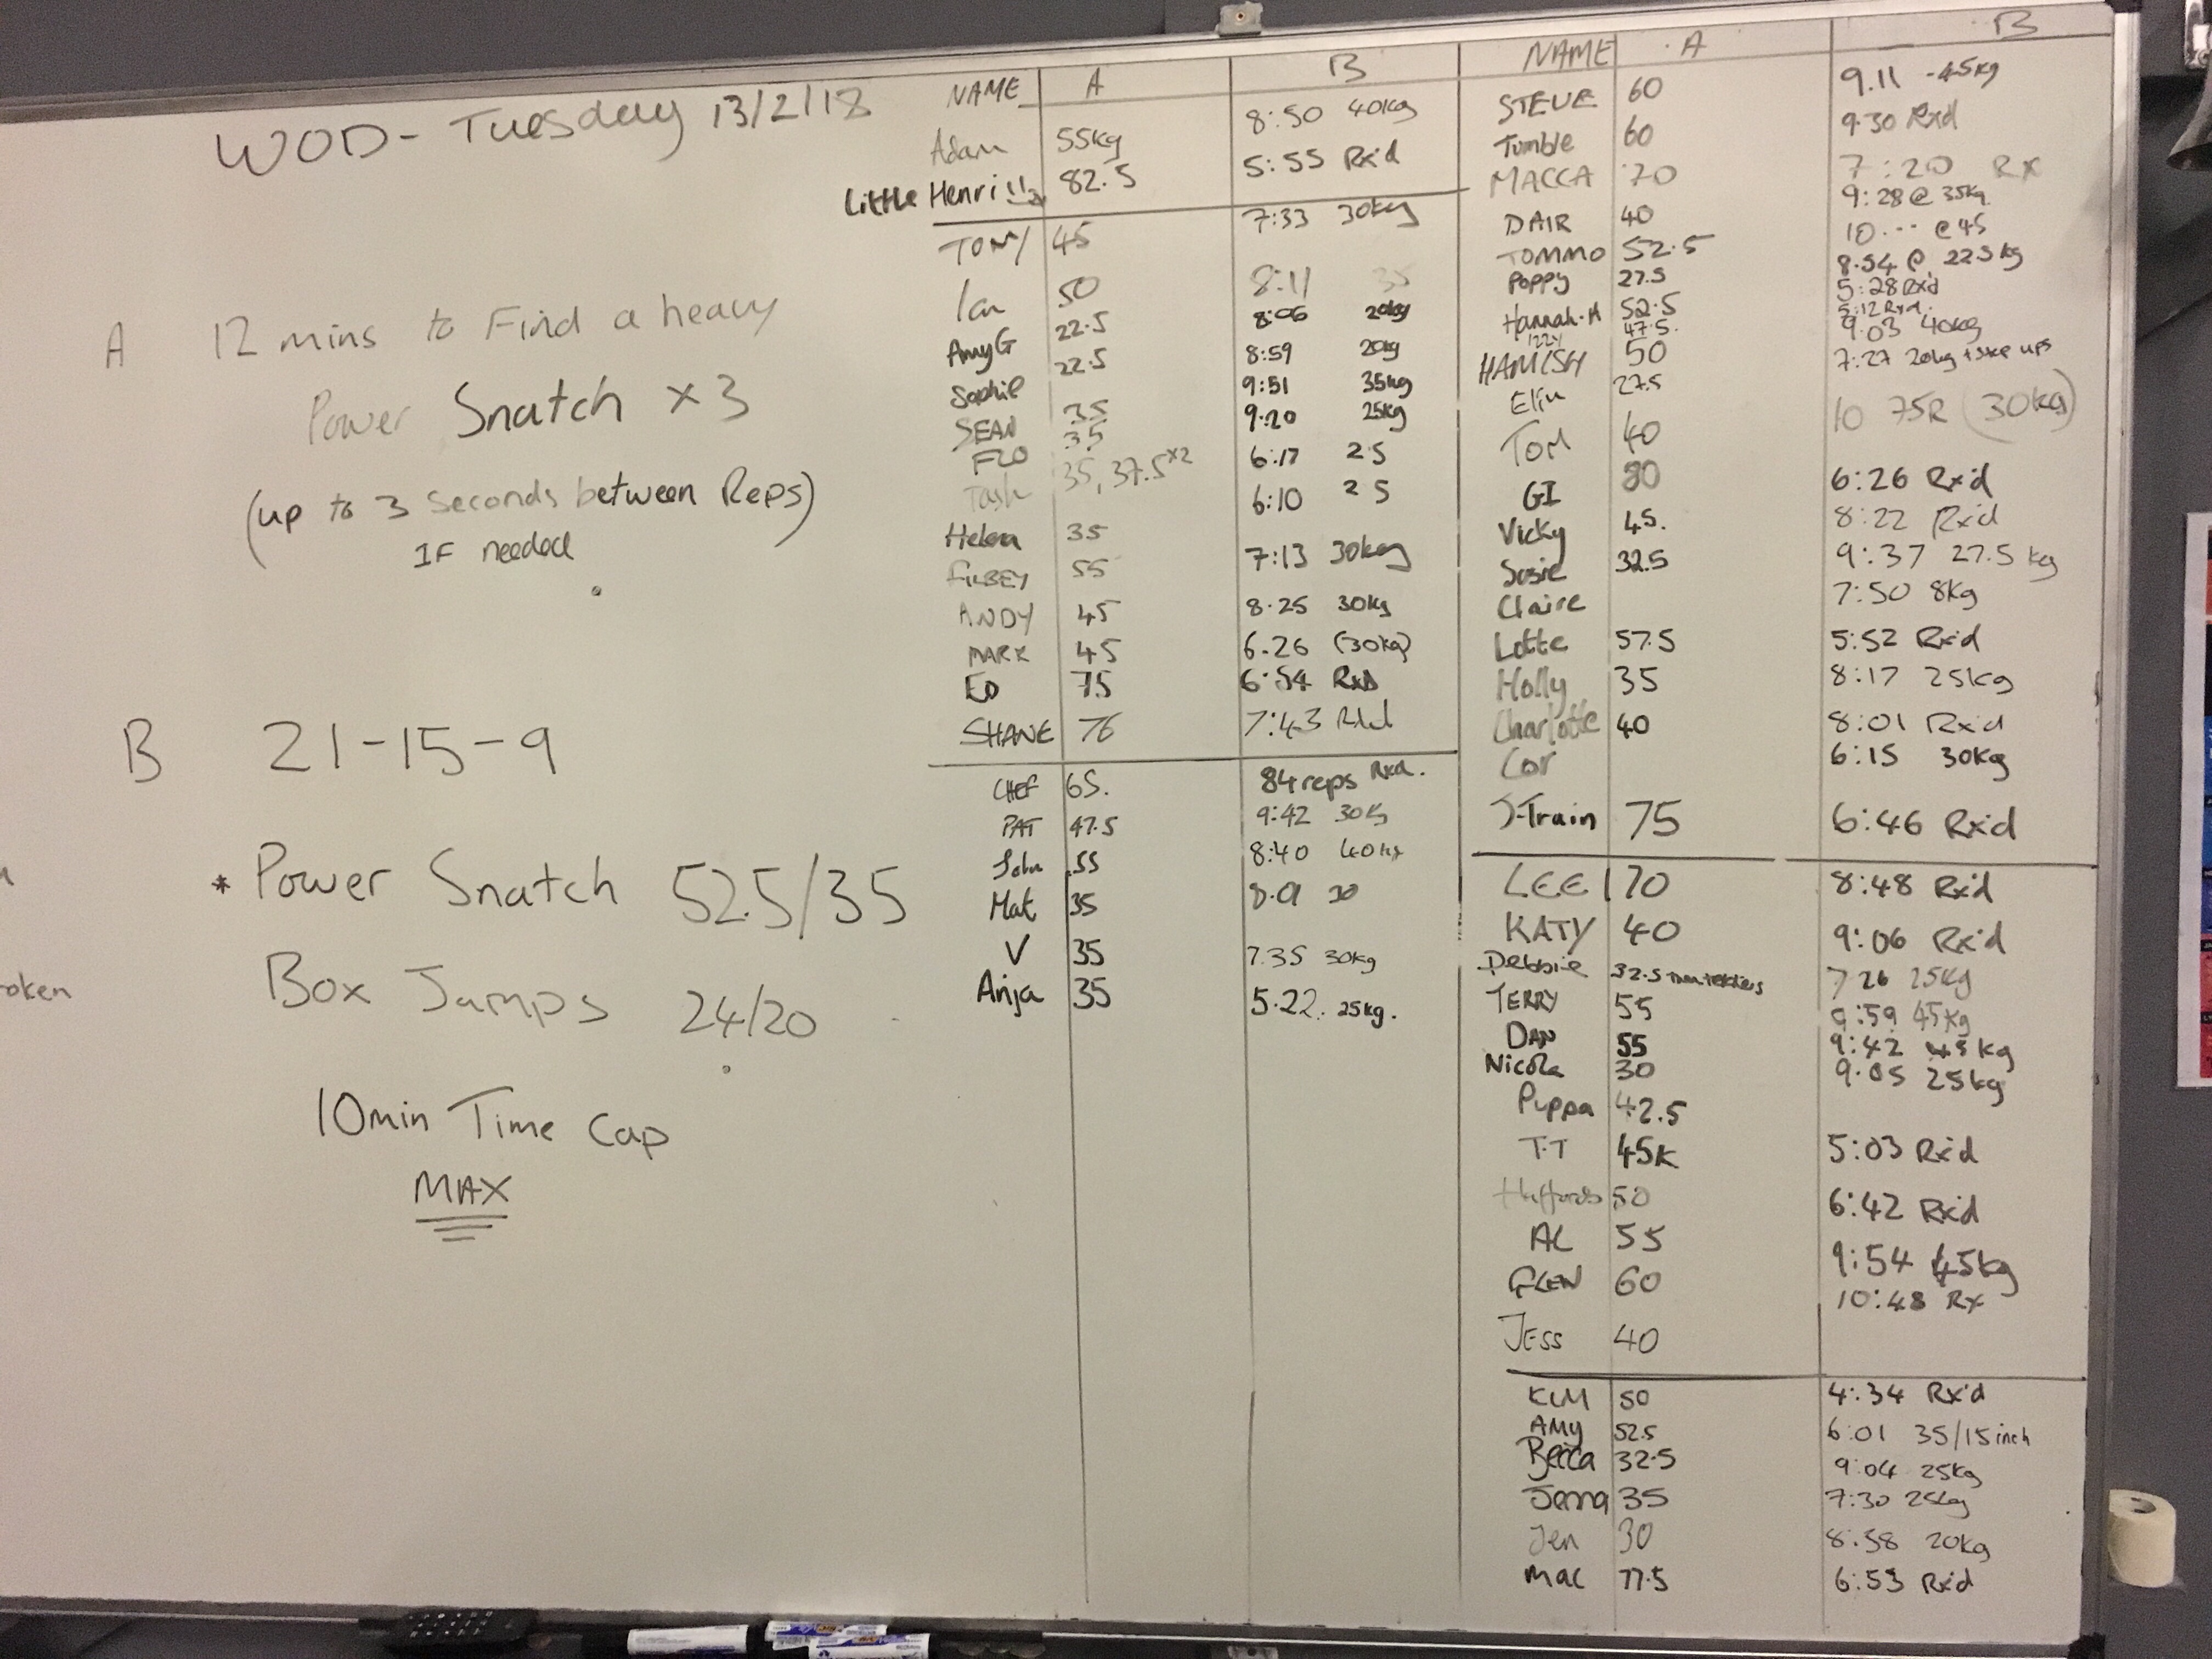 WOD - Tuesday 13/2/18
A 12 mins to Find a heavy
Power Snatch x 3
(up to 3 seconds between Reps)
IF needed
B 21-15-9
* Power Snatch 52.5/35
Box Jumps 24/20
10min Time Cap
MAX
oken
NAME A B
Adam 55kg 8:50 40kg
Little Henri 82.5 5:55 Rx'd
TOM 45 7:33 30kg
Ian 50 8:11 35
Amy G 22.5 8:06 20kg
Sophie 22.5 8:59 20kg
SEAN 35 9:51 35kg
FLO 35 9:20 25kg
Tash 35, 37.5 x2 6:17 25
Helena 35 6:10 25
FILBEY 55 7:13 30kg
ANDY 45 8.25 30kg
MARK 45 6.26 (30kg)
ED 75 6:54 Rxd
SHANE 76 7:43 Rxd
CHEF 65. 84 reps Rxd.
PAT 47.5 9:42 30kg
John 55 8:40 40kg
Mat 35 30
V 35 7.35 30kg
Anja 35 5.22. 25kg.
NAME A B
STEVE 60 9.11 - 45kg
Tumble 60 9.30 Rxd
MACCA 70 7:20 Rx
DAIR 40 9:28 @ 35kg
TOMMO 52.5 10 ... @ 45
Poppy 27.5 8.54 @ 22.5kg
Hannah.M 52.5 5:28 Rxd
Izzy 47.5. 5:12 Rxd.
HAMISH 50 9:03 40kg
Elin 27.5 7:27 20kg + step ups
TOM 40 10 75R (30kg)
GI 80 6:26 Rx'd
Vicky 45. 8:22 Rx'd
Susie 32.5 9:37 27.5 kg
Claire 7:50 8kg
Lotte 57.5 5:52 Rx'd
Holly 35 8:17 25kg
Charlotte 40 8:01 Rx'd
Cor 6:15 30kg
J-Train 75 6:46 Rx'd
LEE 70 8:48 Rx'd
KATY 40 9:06 Rx'd
Debbie 32.5 7 26 25kg
TERRY 55 9:59 45kg
DAN 55 9:42 45kg
Nicola 30 9.05 25kg
Puppa 42.5
T.T 45K 5:03 Rx'd
Haffords 50 6:42 Rx'd
AL 55 9:54 45kg
GLEN 60 10:48 Rx
JESS 40
KLM 50 4:34 Rx'd
AMY 52.5 6:01 35/15 inch
Becca 32.5 9:04 25kg
Jenna 35 7:30 25kg
Jen 30 8:58 20kg
Mac 77.5 6:53 Rx'd